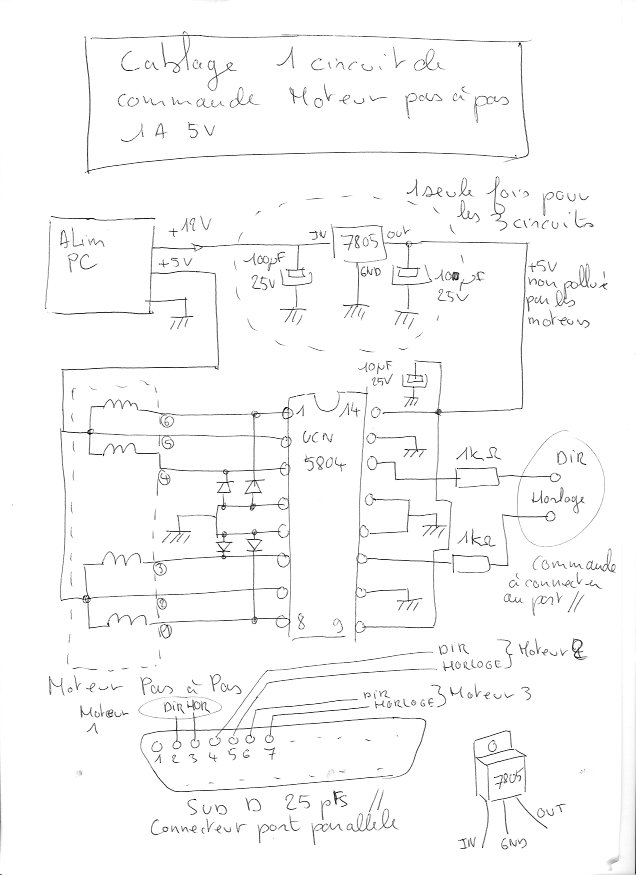 Cablage 1 circuit de
commande Moteur pas à pas
1A 5V
1 seule fois pour
les 3 circuits
ALim
PC
+12V
+5V
IN
7805
OUT
GND
100µF
25V
100µF
25V
+5V
non pollué
par les
moteurs
10µF
25V
1
14
UCN
5804
8
9
6
5
4
3
2
1
1kΩ
1kΩ
DIR
Horloge
Commande
à connecter
au port //
Moteur Pas à Pas
DIR
HORLOGE
Moteur 2
DIR
HORLOGE
Moteur 3
Moteur
1
DIR HOR
1 2 3 4 5 6 7
SUB D 25 pts //
Connecteur port parallèle
7805
IN
GND
OUT